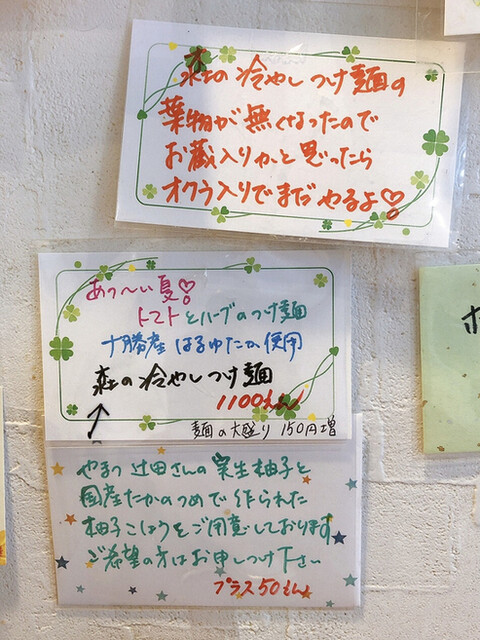 森の冷やしつけ麺の
葉物が無くなったので
お蔵入りかと思ったら
オクラ入りでまだやるよ
あつ〜い夏
トマトとハーブのつけ麺
十勝産はるゆたか使用
森の冷やしつけ麺
1100えん
麺の大盛り 150円増
やまつ辻田さんの実生柚子と
国産たかのつめで作られた
柚子こしょうをご用意しております
ご希望の方はお申しつけ下さい
プラス50えん